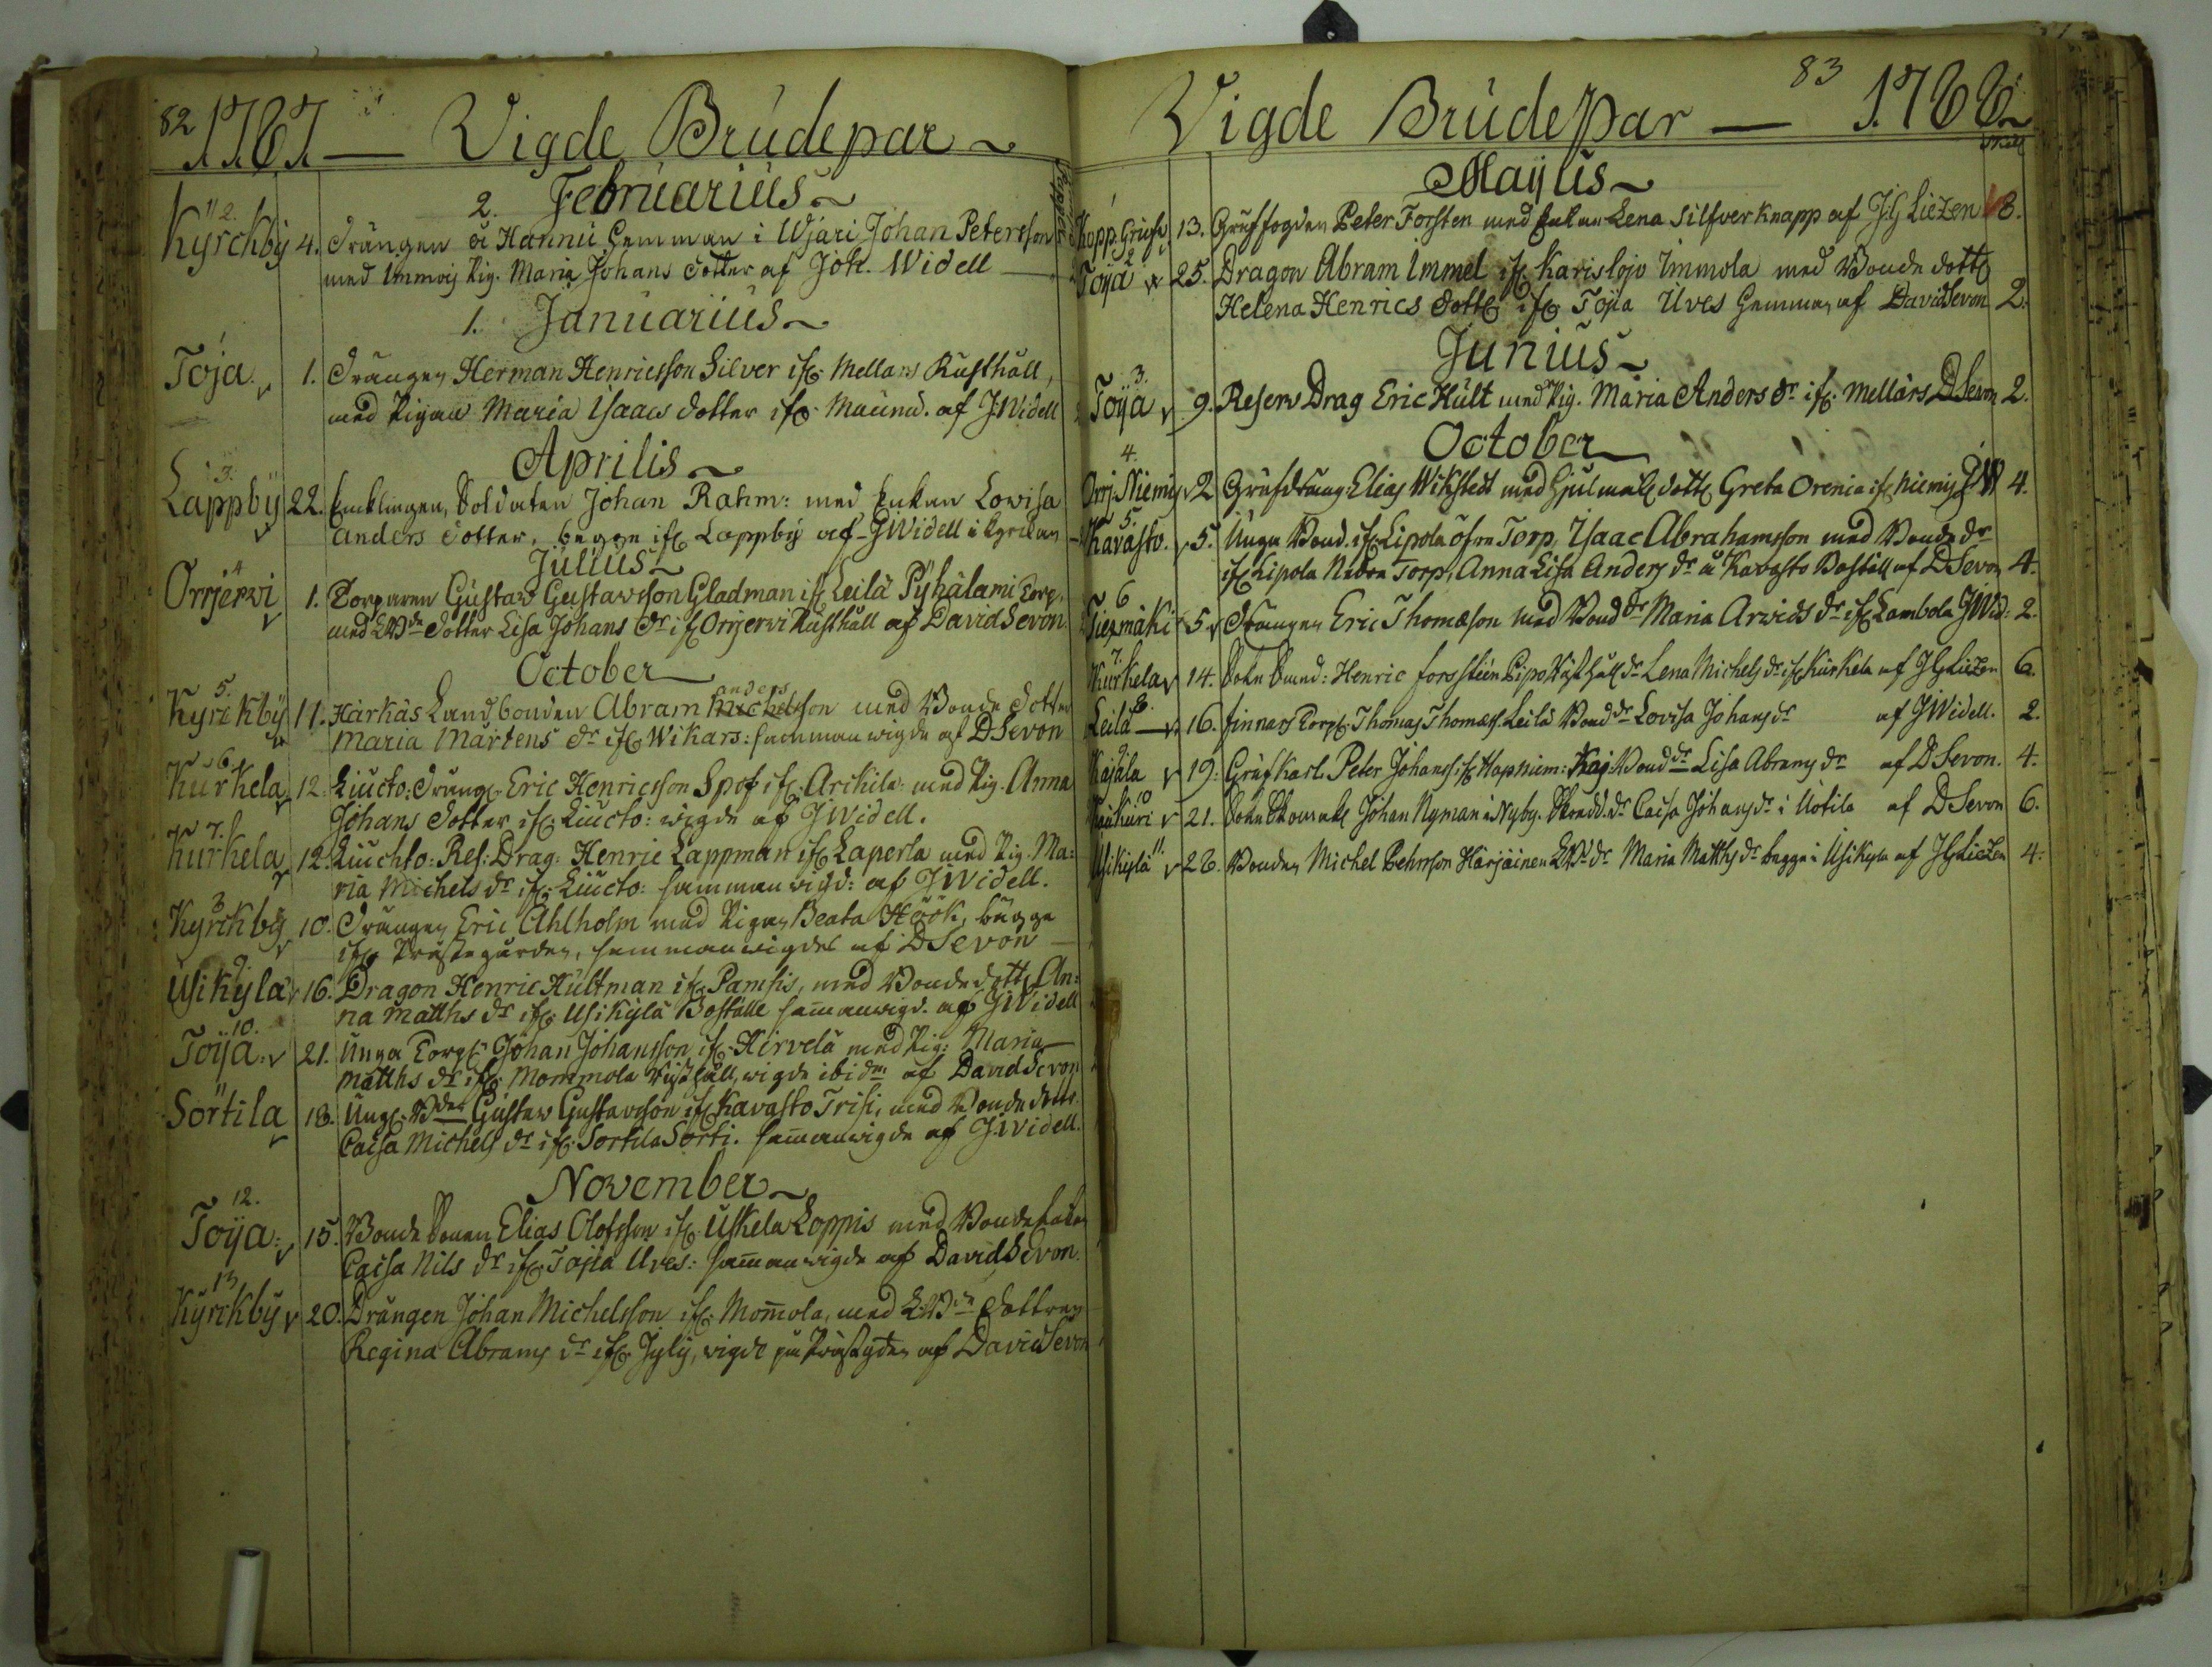 82
1767 — Vigde Brudepar
2. Februarius
11 2.
Kyrckby 4. Drängen å Hannu hemman i Wjari Johan Petersson
med Immois Pig. Maria Johans dotter af Joh. Widell
1. Januarius
Toja 1. Drängen Herman Henricsson Silver ifr. Mellars Rusthåll,
med Pigan Maria Isaacs dotter ifr. Maunu. af JWidell
Aprilis
3.
Lappby 22. Enklingen, Soldaten Johan Rahm: med Enkan Lowisa
Anders dotter, begge ifr. Lappby af JWidell i Kyrckan
Julius
4
Orrjerwi 1. Torparen Gustaw Gustawsson Gladman ifr. Leilä Pyhälami Torp.
med dotter Lisa Johans dr ifr. Orrjerwi Rusthåll af David Sevon
October
5. anders
Kyrckby 11. Härkäs Landbonden Abram Michelsson med Bonde Dotter
Maria Mårtens dr ifr. Wikars: sammanwigde af DSevon
6.
Kurkela 12. Liucto: Dräng. Eric Henricsson Spof ifr. Arckila: med Pig. Anna
Johans dotter ifr. Liucto: wigde af JWidell.
7.
Kurkela 12. Liuchto: Res: Drag: Henric Lappman ifr. Laperla med Pig. Ma:
ria Michels dr ifr. Liucto: sammanwigd: af JWidell.
8
Kyrckby 10. Drängen Eric Ahlholm med Pigan Beata Höök, bägge
ifr. Prästegården, sammanwigde af DSevon
9.
Usikyla 16. Dragon Henric Hultman ifr. Pamsis, med Bonde dottr An:
na Matths dr ifr. Usikylä Boställe samanwigd. af JWidell
10.
Toija. 21. Unga Torp. Johan Johansson ifr. Hirvelä med Pig: Maria
Matths dr ifr. Mommola Rusthåll, wigde ibidm af David Sevon
11
Sortila 18. Ung. Gustaw Gustavsson ifr. Kavasto Trisi, med Bonde dottr
Caisa Michels dr ifr. Sortila Sorti. samanwigde af JWidell.
November
12.
Toija. 15. Bonde Sonen Elias Olofsson ifr. Uskela Loppis med Bonde
Caisa Nils dr ifr. Tojia Uves: samanwigde af David Sevon.
13
Kyrckby 20. Drängen Johan Michelsson ifr. Momola, med dottren
Regina Abrams dr ifr. Jyly, wigde på Prästgden af David Sevon
83
Vigde Brudepar — 1766
Maijus
1
Kopp. Grufv. 13. Gruffogden Peter Forsten med Enkan Lena Silfverknapp af JG Liezen 8.
2
Toija 25. Dragon Abram Immel ifr. Karislojo Immola med Bonde dottr
Helena Henrics dottr ifr. Tojia Uves hemman af David Sevon 2.
Junius
3.
Toija 9. Reserv Drag Eric Hult med Pig. Maria Anders dr ifr. Mellars DSevon 2.
October
4.
Orrj. Niemis 2 Grufdräng. Elias Wikstedt med Hjulmak. dottr Greta Orenia ifr. Niemis JW 4.
5.
Kavasto. 5. Unga Bond. ifr. Lipola öfre Torp, Isaac Abrahamsson med Bonde dr
ifr. Lipola Nedre Torp, Anna Lisa Anders dr å Kavasto Boställ af DSevon 4.
6
Tiezmäki 5. Drängen Eric Thomæson med Bond dr Maria Arwids dr ifr. Lambola JWid: 2.
7.
Kurkela 14. Henric forssteen Pipo Lena Michels dr ifr. Kurkela af JG Liezen 6.
8.
Leilä 16. finnars Torp. Thomas Thomæss. Leilä Bond dr Lovisa Johans dr af JWidell. 2.
9
Kajala 19. Grufkarl. Peter Johanss. ifr. Hapnium: Kaj. Bond dr Lisa Abrams dr af DSevon. 4.
10
21. Skomak. Johan Nyman i Nyby. Caisa Johans dr i Uotila af DSevon 6.
11
Usikylä 26. Bonden Michel Pehrsson Härjäinen Maria Matths dr bägge i Usikyla af JG Liezen 4.